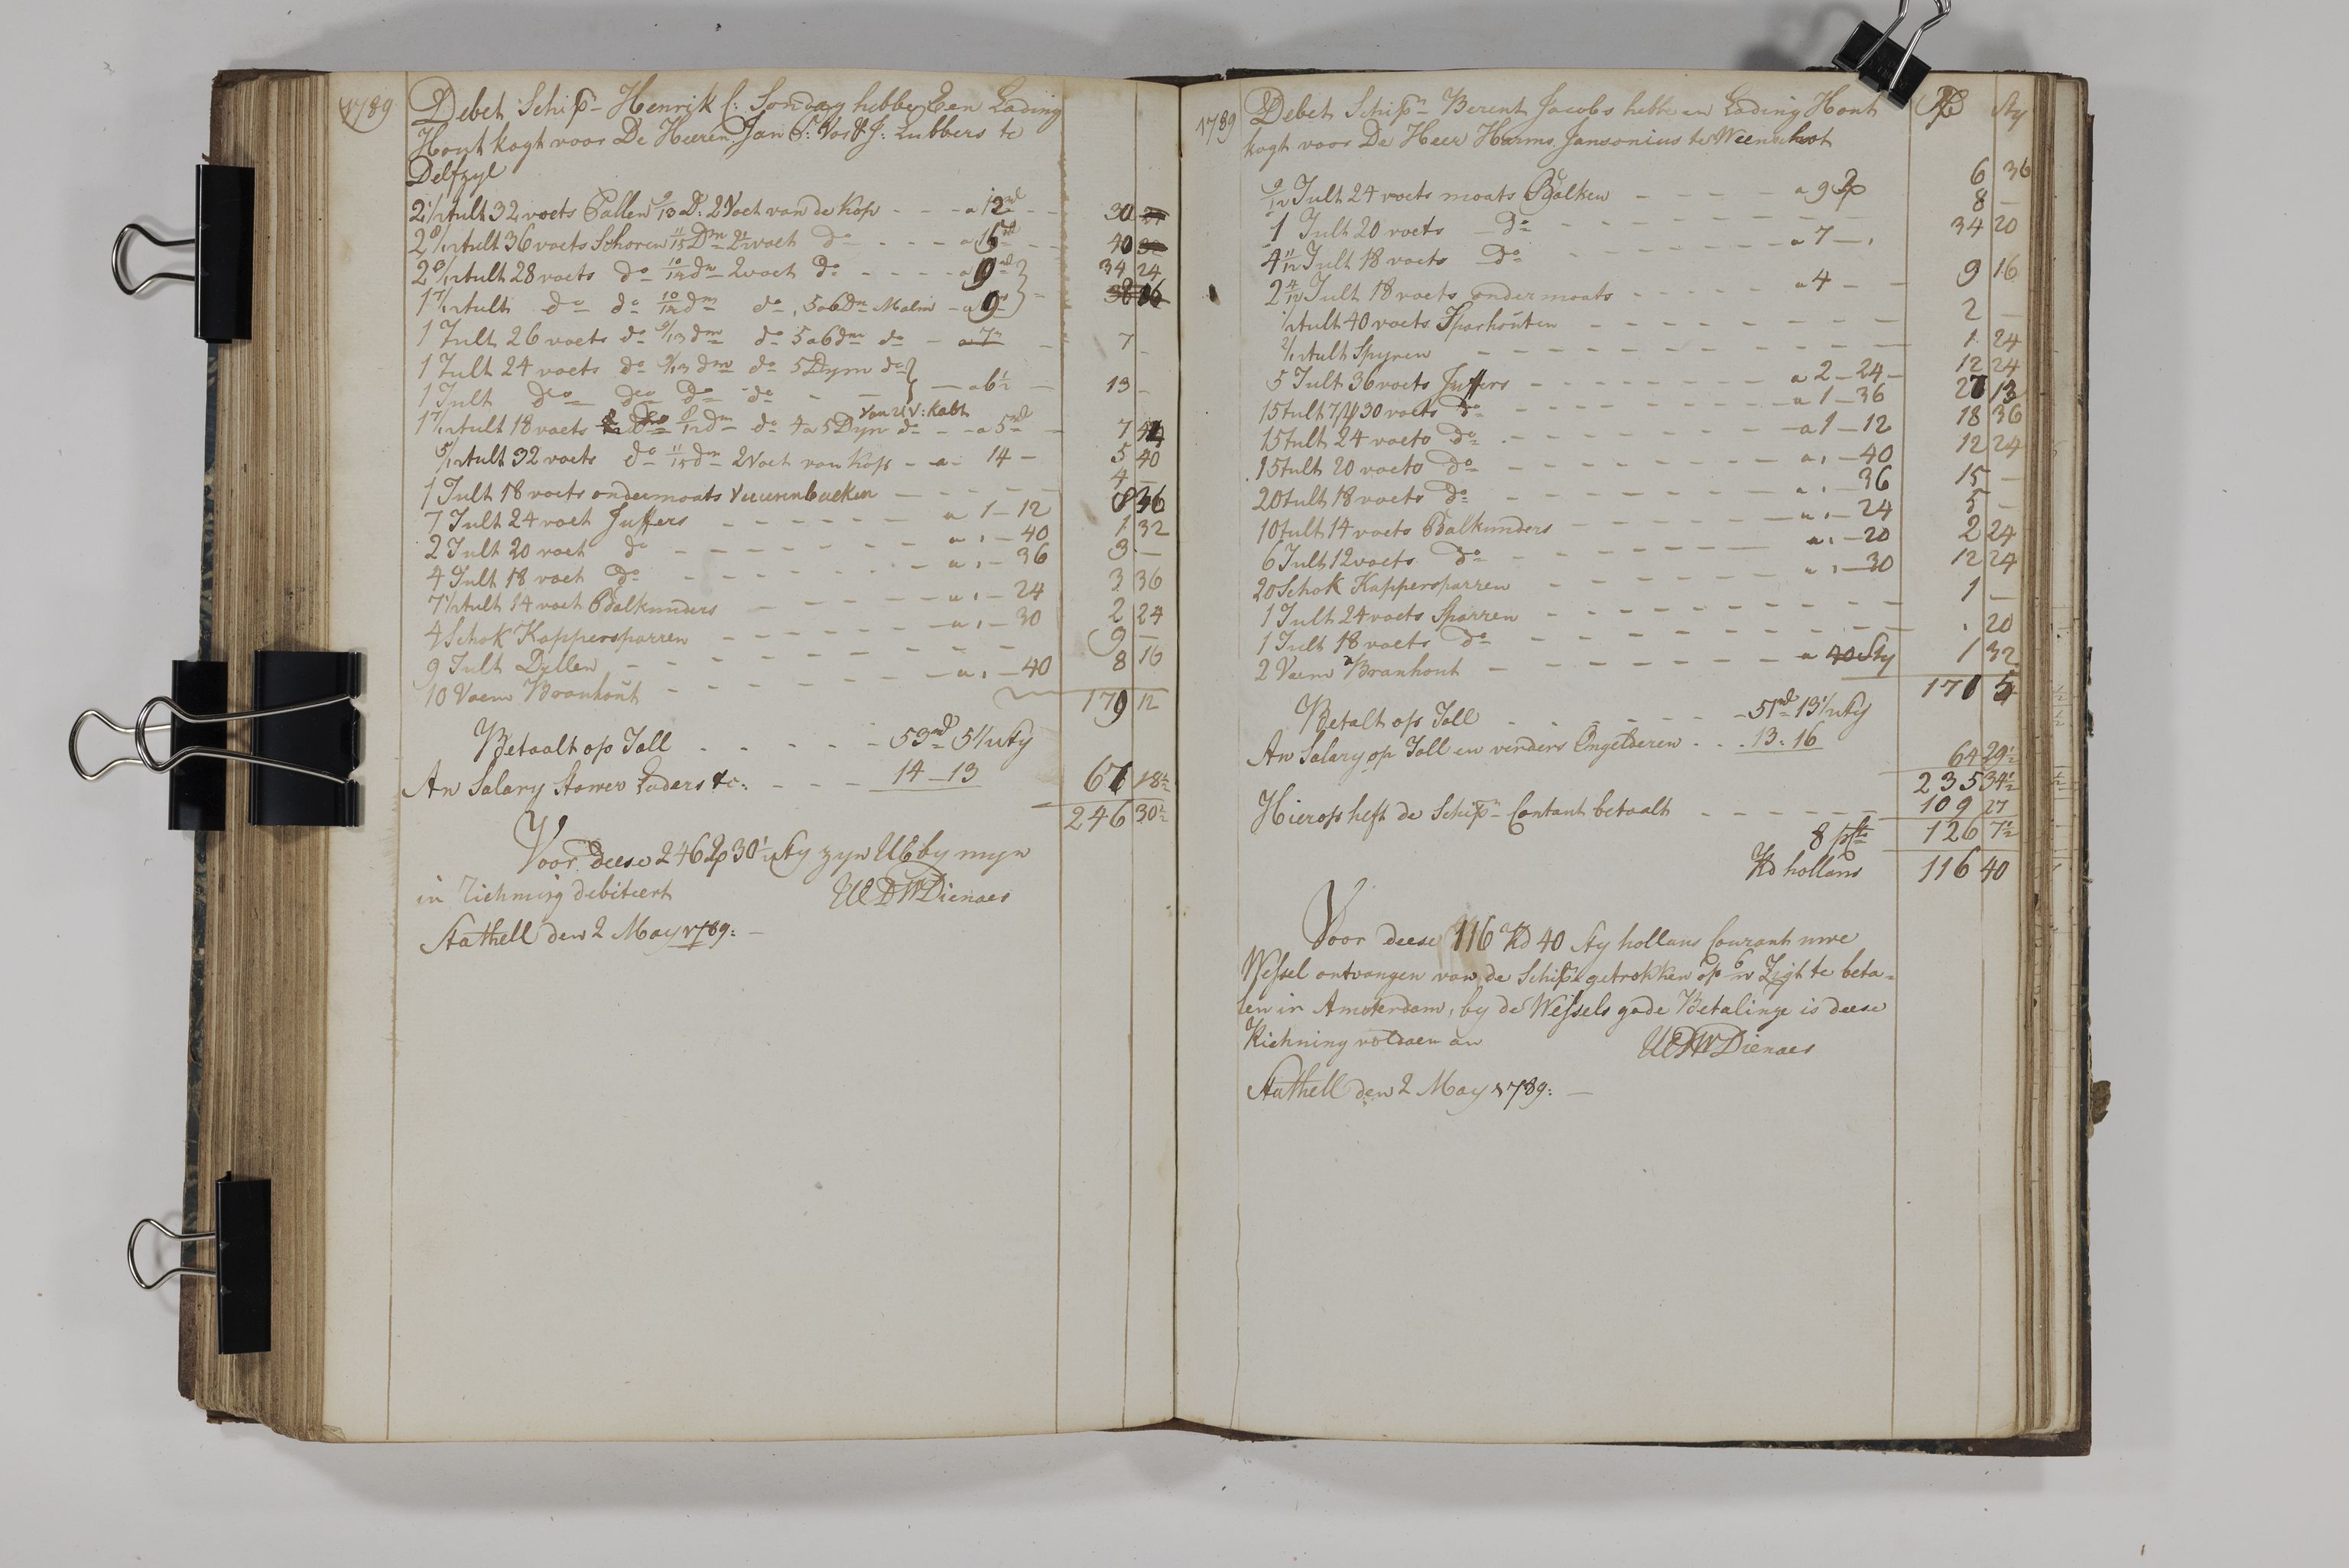 1789 Debet Schipr Henrik C: Sondag hebbe Een Lading
Hout kogt voor De Heeren Jan P: Vos & J: Lubbers te
Delfzyl
2 1/2 tult 32 voets Ballen 9/13 D: 2 Voet van de Kop - - - a 12 rd - - 30
2 8/12 tult 36 voets Schoren 11/15 Dm 2 1/2 voet do - - - - a 15 rd - - 40
28 voets do 10/14 dm 2 voet do - - - - a 9 rd 34 24
do do 10/14 dm do, 5 a 6 dm Malm - a 9
1 Tult 26 voets do 9/13 dm do 5 a 6 dm do - a 7 - 7 -
1 Tult 24 voets do 9/13 dm do 5 Dym do
1 Tult do do do do - - - a 6 1/2 - 13 -
18 voets 8/12 dm do 4 a 5 Dym do - - a 5 rd 7
5/12 tult 32 voets do 11/15 dm 2 Voet van Kop - a - 14 - 5 40
1 Tult 18 voets ondermaats - - - - 4 -
7 Tult 24 voet Juffers - - - - - - a 1 - 12 8 36
2 Tult 20 voet do - - - - - - a , - 40 1 32
4 Tult 18 voet do - - - - - - a , - 36 3 -
7 1/2 tult 14 voet Balkunders - - - - a , - 24 3 36
4 Schok Kappersparren - - - - - a , - 30 2 24
9 Tult Dellen - - - - - - - - 9 -
10 Vaem Branhout - - - - - - a , - 40 8 16
179 12
Betaalt op Toll - - - - - 53 rd 5 1/2 sty
An Salary Stower Laders &c: - - - 14 - 13 67 18 1/2
246 30 1/2
Voor deese 246 Rd 30 1/2 sty zyn UE by myn
in Riehning debiteert UEDWDienaer
Stathell den 2 May 1789: -
1789 Debet Schipr Berent Jacobs hebbe en Lading Hout Rd Sty
kogt voor De Heer Harms Jansonius te Weenshoot
9/12 Tult 24 voets maats Balken - - - - - a 9 Rd 6 36
1 Tult 20 voets do - - - - - - 8 -
4 11/12 Tult 18 voets do - - - - - a 7 - , 34 20
2 4/12 Tult 18 voets ondermaats - - - - - a 4 - - 9 16
1/12 tult 40 voets Sparhouten - - - - - - - 2 -
Spyren - - - - - - - - - 1 24
5 Tult 36 voets Juffers - - - - - - a 2 - 24 - 12 24
15 tult 30 voets do - - - - - - a 1 - 36
15 tult 24 voets do - - - - - - a 1 - 12 18 36
15 tult 20 voets do - - - - - - a , - 40 12 24
20 tult 18 voets do - - - - - - a , - 36 15 -
10 tult 14 voets Balkunders - - - - - a , - 24 5 -
6 Tult 12 voets do - - - - - - a , - 20 2 24
20 Schok Kappersparren - - - - - a , - 30 12 24
1 Tult 24 voets Sparren - - - - - - - - 1 -
1 Tult 18 voets do - - - - - - - - . 20
2 Vaem Branhout - - - - - - - a 40 Sty 1 32
Betalt op Toll - - - - - - 51 rd 13 1/2 sty
An Salary op Toll en verders Ongelderen - - . 13 : 16 64 29 1/2
235 34 1/2
Hierop heft de Schipr Contant betaalt - - - - - 109 27
8 pCto 126 7 1/2
Rd hollans 116 40
Voor deese 116 Rd 40 sty hollans Courant uwe
Wessel ontvangen van de Schipr getrokken op 6/w Zigt te beta-
len in Amsterdam, by de Wessels gode Betalinge is deese
Riehning voldaen an UEDWDienaer
Stathell den 2 May 1789: -